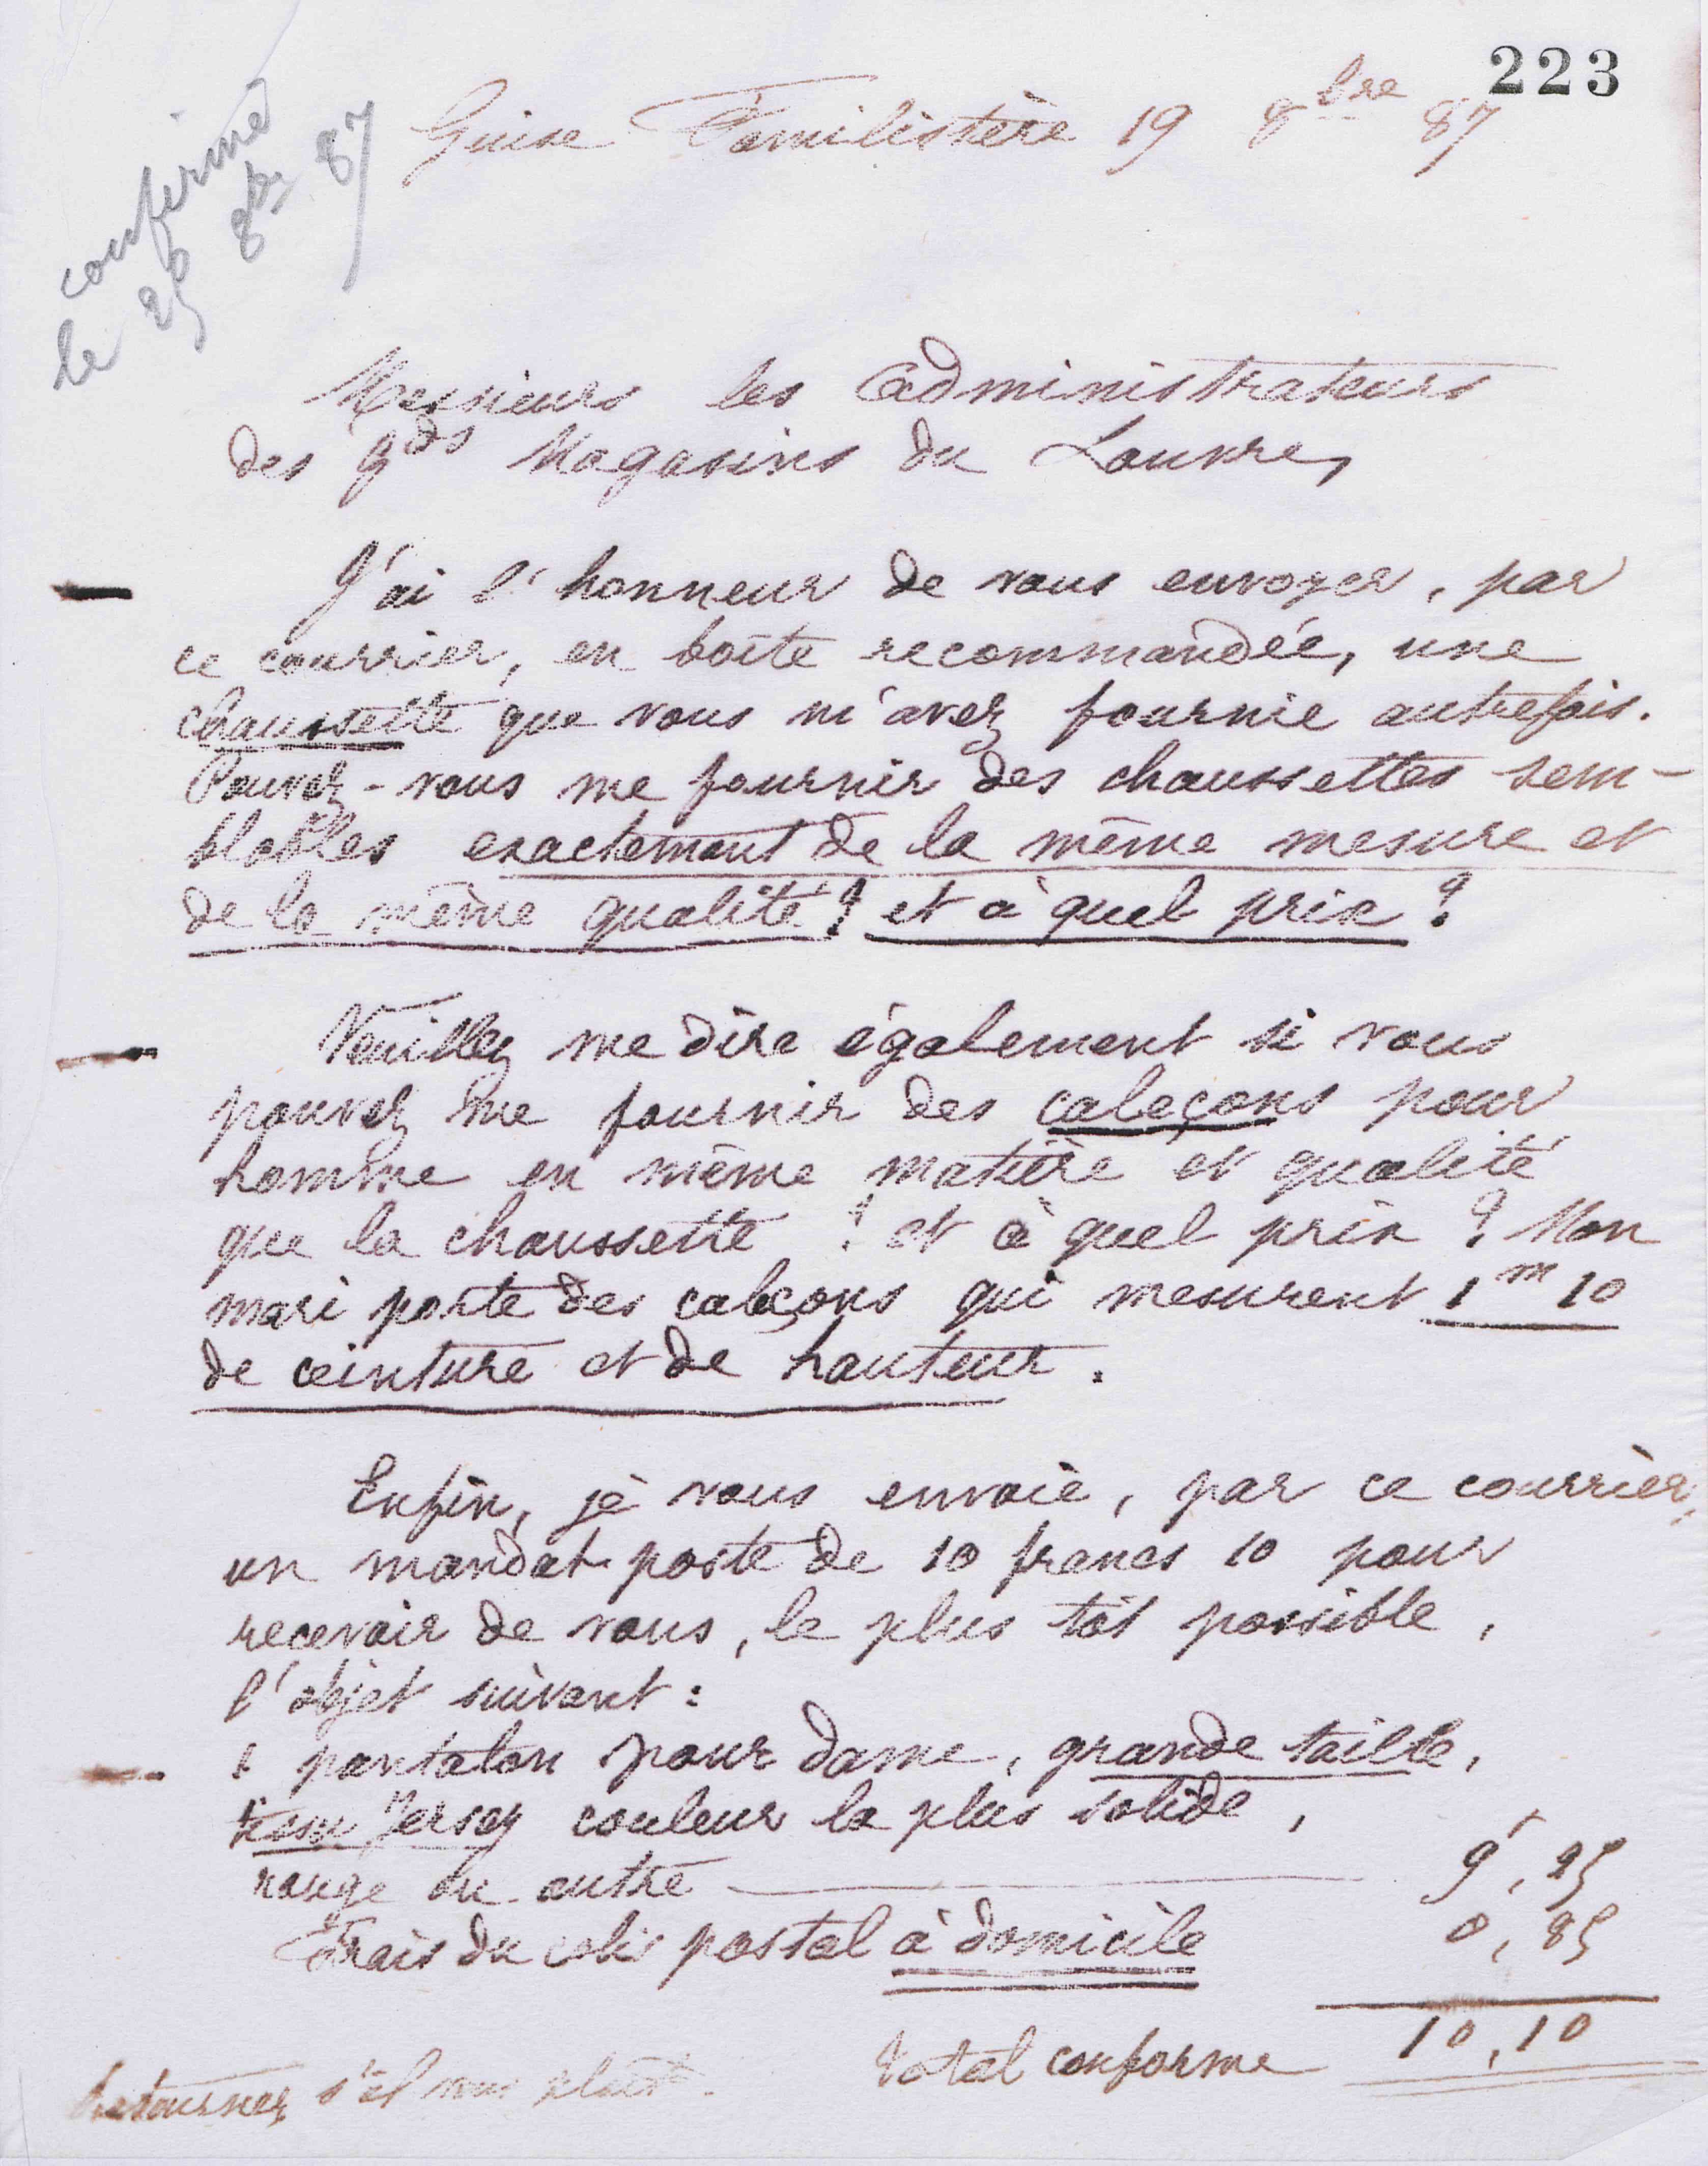 223
Guise Familistère 19 8bre 87
confirmé
le 26 8bre 87
Messieurs les Administrateurs
des Gds Magasins du Louvre,
J'ai l'honneur de vous envoyer, par
ce courrier, en boîte recommandée, une
chaussette que vous m'avez fournie autrefois.
Pouvez-vous me fournir des chaussettes sem-
blables exactement de la même mesure et
de la même qualité ? et à quel prix ?
Veuillez me dire également si vous
pouvez me fournir des caleçons pour
homme en même matière et qualité
que la chaussette ? et à quel prix ? Mon
mari porte des caleçons qui mesurent 1m 10
de ceinture et de hauteur.
Enfin, je vous envoie, par ce courrier,
un mandat-poste de 10 francs 10 pour
recevoir de vous, le plus tôt possible,
l'objet suivant :
1 pantalon pour dame, grande taille,
tissu Jersey couleur la plus solide,
rouge ou autre 9f,25
Frais du colis postal à domicile 0,85
Total conforme 10,10
Retourner s'il vous plaît.